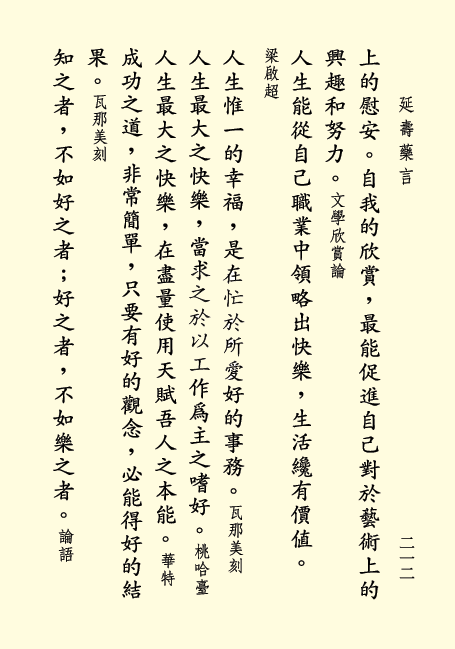 延壽藥言
二一二
上的慰安。自我的欣賞，最能促進自己對於藝術上的
興趣和努力。文學欣賞論
人生能從自己職業中領略出快樂，生活纔有價值。
梁啟超
人生惟一的幸福，是在忙於所愛好的事務。瓦那美刻
人生最大之快樂，當求之於以工作爲主之嗜好。桃哈臺
人生最大之快樂，在盡量使用天賦吾人之本能。華特
成功之道，非常簡單，只要有好的觀念，必能得好的結
果。瓦那美刻
知之者，不如好之者；好之者，不如樂之者。論語